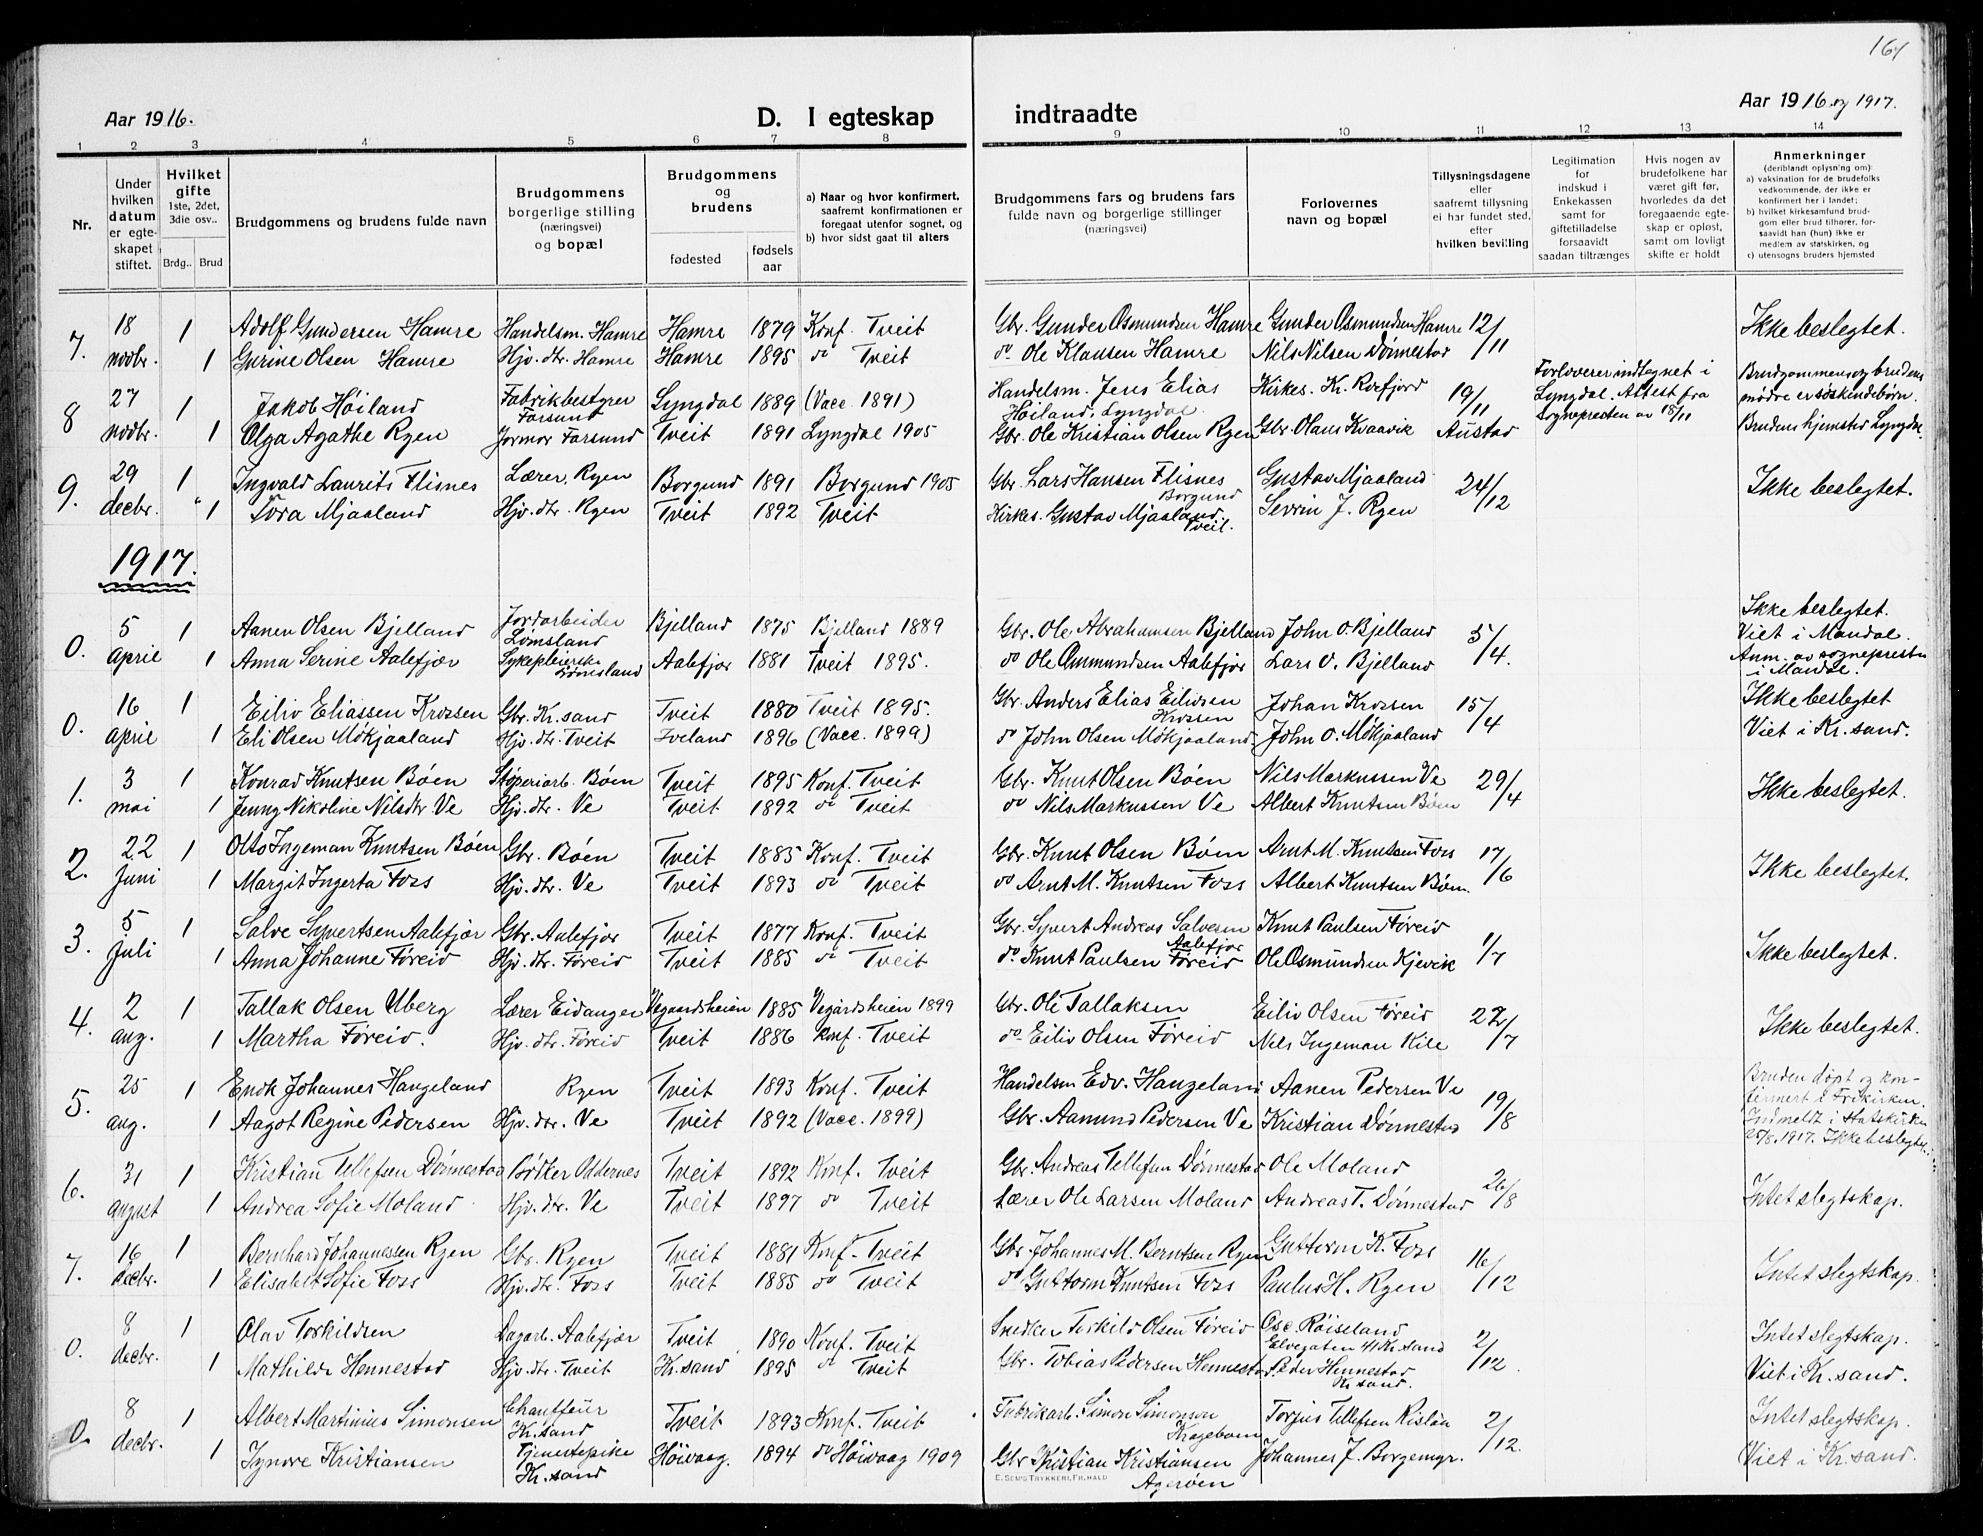 161
Aar 1916.
D. I egteskap indtraadte
Aar 1916 og 1917.
1 2 3 4 5 6 7 8 9 10 11 12 13 14
Nr.
Under hvilken datum er egteskapet stiftet.
Hvilket gifte 1ste, 2det, 3die osv..
Brdg.. Brud
Brudgommens og brudens fulde navn
Brudgommens borgerlige stilling (næringsvei) og bopæl
Brudgommens og brudens
fødested
fødsels aar
a) Naar og hvor konfirmert, saafremt konfirmationen er foregaat utenfor sognet, og
b) hvor sidst gaat til alters
Brudgommens fars og brudens fars fulde navn og borgerlige stillinger (næringsvei)
Forlovernes navn og bopæl
Tillysningsdagene eller saafremt tillysning ei har fundet sted, efter hvilken bevilling
Legitimation for indskud i Enkekassen samt for giftetilladelse forsaavidt saadan tiltrænges
Hvis nogen av brudefolkene har været gift før, hvorledes da det foregaaende egteskap er opløst, samt om lovligt skifte er holdt
Anmerkninger (deriblandt oplysning om):
a) vaksination for de brudefolks vedkommende, der ikke er konfirmert her i landet;
b) hvilket kirkesamfund brudgom eller brud tilhører, forsaavidt han (hun) ikke er medlem av statskirken, og
c) utensogns bruders hjemsted
7. 18 novbr. 1 Adolf Gundersen Hamre Handelsm. Hamre Hamre 1879 Konf. Tveit Gbr. Gunder Osmundsen Hamre Gunder Osmundsen Hamre 12/11 Ikke beslegtet.
1 Gurine Olsen Hamre Hjv. dtr. Hamre Hamre 1895 do Tveit do Ole Klausen Hamre Nils Nilsen Dønnestad
8 27 novbr. 1 Jakob Høiland Fabrikbestyrer Farsund Lyngdal 1889 (Vacc. 1891) Handelsm. Jens Elias Høiland, Lyngdal Kirkes. K. Roefjord 19/11 Forloverer indtegnet i Lyngdal. Attest fra Sognepresten av 18/11 Brudgommens og brudens mødre er søskendebørn.
1 Olga Agathe Ryen Jormor Farsund Tveit 1891 Lyngdal 1905 Gbr. Ole Kristian Olsen Ryen Gbr. Olaus Kvaavik Austad Brudens hjemsted Lyngdal.
9. 29 decbr. 1 Ingvald Laurits Flisnes Lærer, Ryen Borgund 1891 Borgund 1905 Gbr. Lars Hansen Flisnes Borgund Gustav Mjaaland 24/12 Ikke beslegtet.
" 1 Tora Mjaaland Hjv. dtr. Ryen Tveit 1892 Tveit Kirkes. Gustav Mjaaland, Tveit. Sevrin J. Ryen
1917.
0. 5 april 1 Aanen Olsen Bjelland Jordarbeider Lømsland Bjelland 1875 Bjelland 1889 Gbr. Ole Abrahamsen Bjelland John O. Bjelland 5/4. Ikke beslegtet. Viet i Mandal.
1 Anna Serine Aalefjær Sykepleierske Lømsland Aalefjær 1881 Tveit 1895. do Ole Osmundsen Aalefjær Lars O. Bjelland Anm. av sognepresten i Mandal.
0. 16 april 1 Eiliv Eliassen Krossen Gbr. Kr.sand Tveit 1880 Tveit 1895. Gbr. Anders Elias Eilivsen Krossen Johan Krossen 15/4 Ikke beslegtet
1 Eli Olsen Mökjaaland Hjv. dtr. Tveit Iveland 1896 (Vacc. 1899) do John Olsen Mökjaaland John O. Mökjaaland Viet i Kr.sand.
1. 3 mai 1 Konrad Knutsen Bøen Støperiarb. Bøen Tveit 1895 Konf. Tveit Gbr. Knut Olsen Bøen Nils Markussen Ve 29/4 Ikke beslegtet.
1 Jenny Nikoline Nilsdtr. Ve Hjv. dtr. Ve Tveit 1892 do Tveit do Nils Markussen Ve Albert Knutsen Bøen
2. 22 Juni 1 Otto Ingeman Knutsen Bøen Gbr. Bøen Tveit 1885 Konf. Tveit Gbr. Knut Olsen Bøen Arnt M. Knutsen Foss 17/6 Ikke beslegtet.
1 Margit Ingerta Foss Hjv. dtr. Ve Tveit 1893 do Tveit do Arnt M. Knutsen Foss Albert Knutsen Bøen
3. 5 Juli 1 Salve Syvertsen Aalefjær Gbr. Aalefjær Tveit 1877 Konf. Tveit Gbr. Syvert Andreas Salvesen Aalefjær Knut Paulsen Føreid 1/7 Ikke beslegtet.
1 Anna Johanne Føreid Hjv. dtr. Føreid Tveit 1885 do Tveit do. Knut Paulsen Føreid Ole Osmundsen Kjevik
4. 2 aug. 1 Tallak Olsen Uberg Lærer Eidanger Vegaardsheien 1885 Vegårdsheien 1899 Gbr. Ole Tallaksen Eiliv Olsen Føreid 22/7 Ikke beslegtet.
1 Martha Føreid. Hjv. dtr. Føreid Tveit 1886 Konf. Tveit do. Eiliv Olsen Føreid Nils Ingeman Kile
5. 25 aug. 1 Enok Johannes Haugeland Ryen Tveit 1893 Konf. Tveit Handelsm Edv. Haugeland Aanen Pedersen Ve 19/8 Bruden døpt og konfirmert i Frikirken.
1 Aagot Regine Pedersen Hjv. dtr. Ve Tveit 1892 (Vacc. 1899) Gbr. Aamund Pedersen Ve Kristian Dønnestad Indmeldt i Statskirken 25/8. 1917. Ikke beslegtet.
6. 31 august 1 Kristian Tellefsen Dønnestad Bødker Oddernes Tveit 1892 Konf. Tveit Gbr. Andreas Tellefsen Dønnestad Ole Moland 26/8 Intet slegtskap.
1 Andrea Sofie Moland Hjv. dtr. Ve Tveit 1897 do Tveit Lærer Ole Larsen Moland Andreas T. Dønnestad
7. 16 decbr. 1 Bernhard Johannessen Ryen Gbr. Ryen Tveit 1881 Konf. Tveit Gbr. Johannes M. Berntsen Ryen Guttorm K. Foss 16/12 Intet slegtskap.
1 Elisabet Sofie Foss Hjv. dtr. Foss Tveit 1885 do Tveit do Guttorm Knutsen Foss Paulus H. Ryen
0. 8 decbr. 1 Olav Torkildsen Dagarb. Aalefjær Tveit 1890 Konf. Tveit Snedker Torkild Olsen Føreid Osc. Røiseland Elvegaten 41 Kr.sand 2/12. Intet slegtskap.
1 Mathilde Hennestad Hjv. dtr. Tveit Kr.sand 1895 do Tveit Gbr. Tobias Pedersen Hennestad Peder Hennestad Kr.sand. Viet i Kr.sand.
0. 8 decbr. 1 Albert Martinius Simonsen Chauffeur Kr.sand Tveit 1893 Konf. Tveit Fabrikarb. Simon Simonson Krageboen Torjus Tellefsen Risløu 2/12. Intet slegtskap
1 Synøve Kristiansen Tjenestepike Kr.sand Høivaag. 1894 do Høivaag 1909 Gbr Kristian Kristiansen Agerøen Johannes J. Borgemyr. Viet i Kr.sand.
E. SEM'S TRYKKERI, FR.HALD